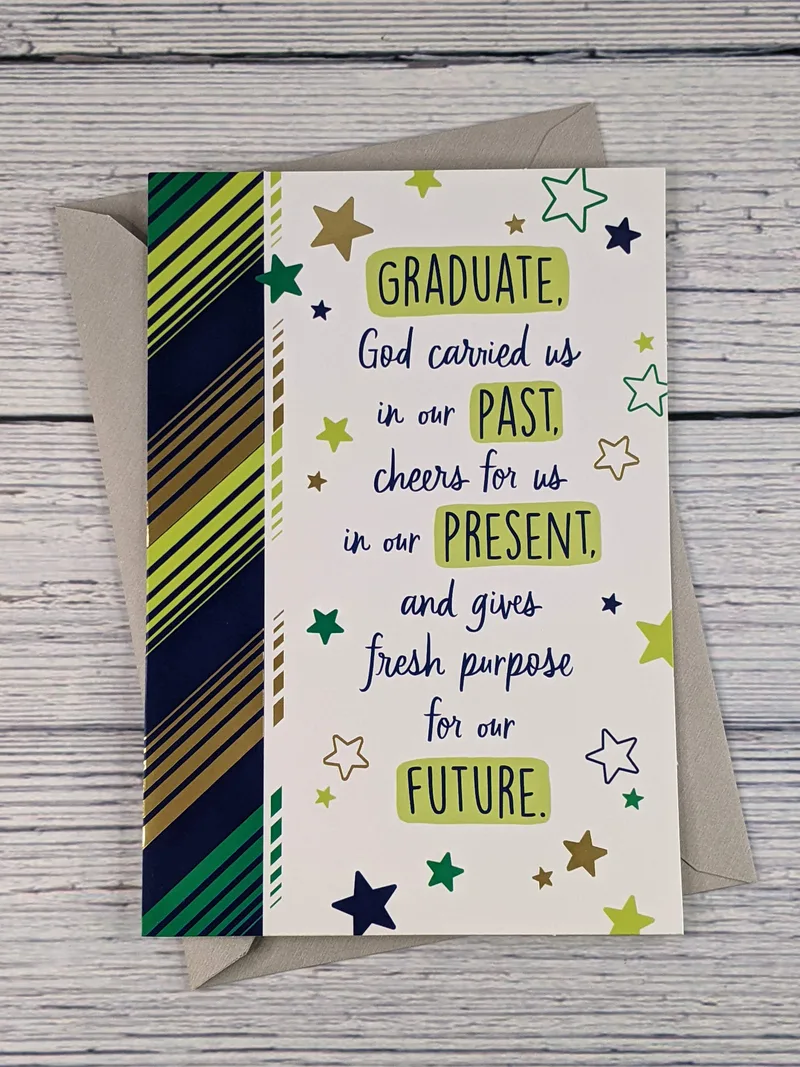 GRADUATE,
God carried us
in our PAST,
cheers for us
in our PRESENT,
and gives
fresh purpose
for our
FUTURE.